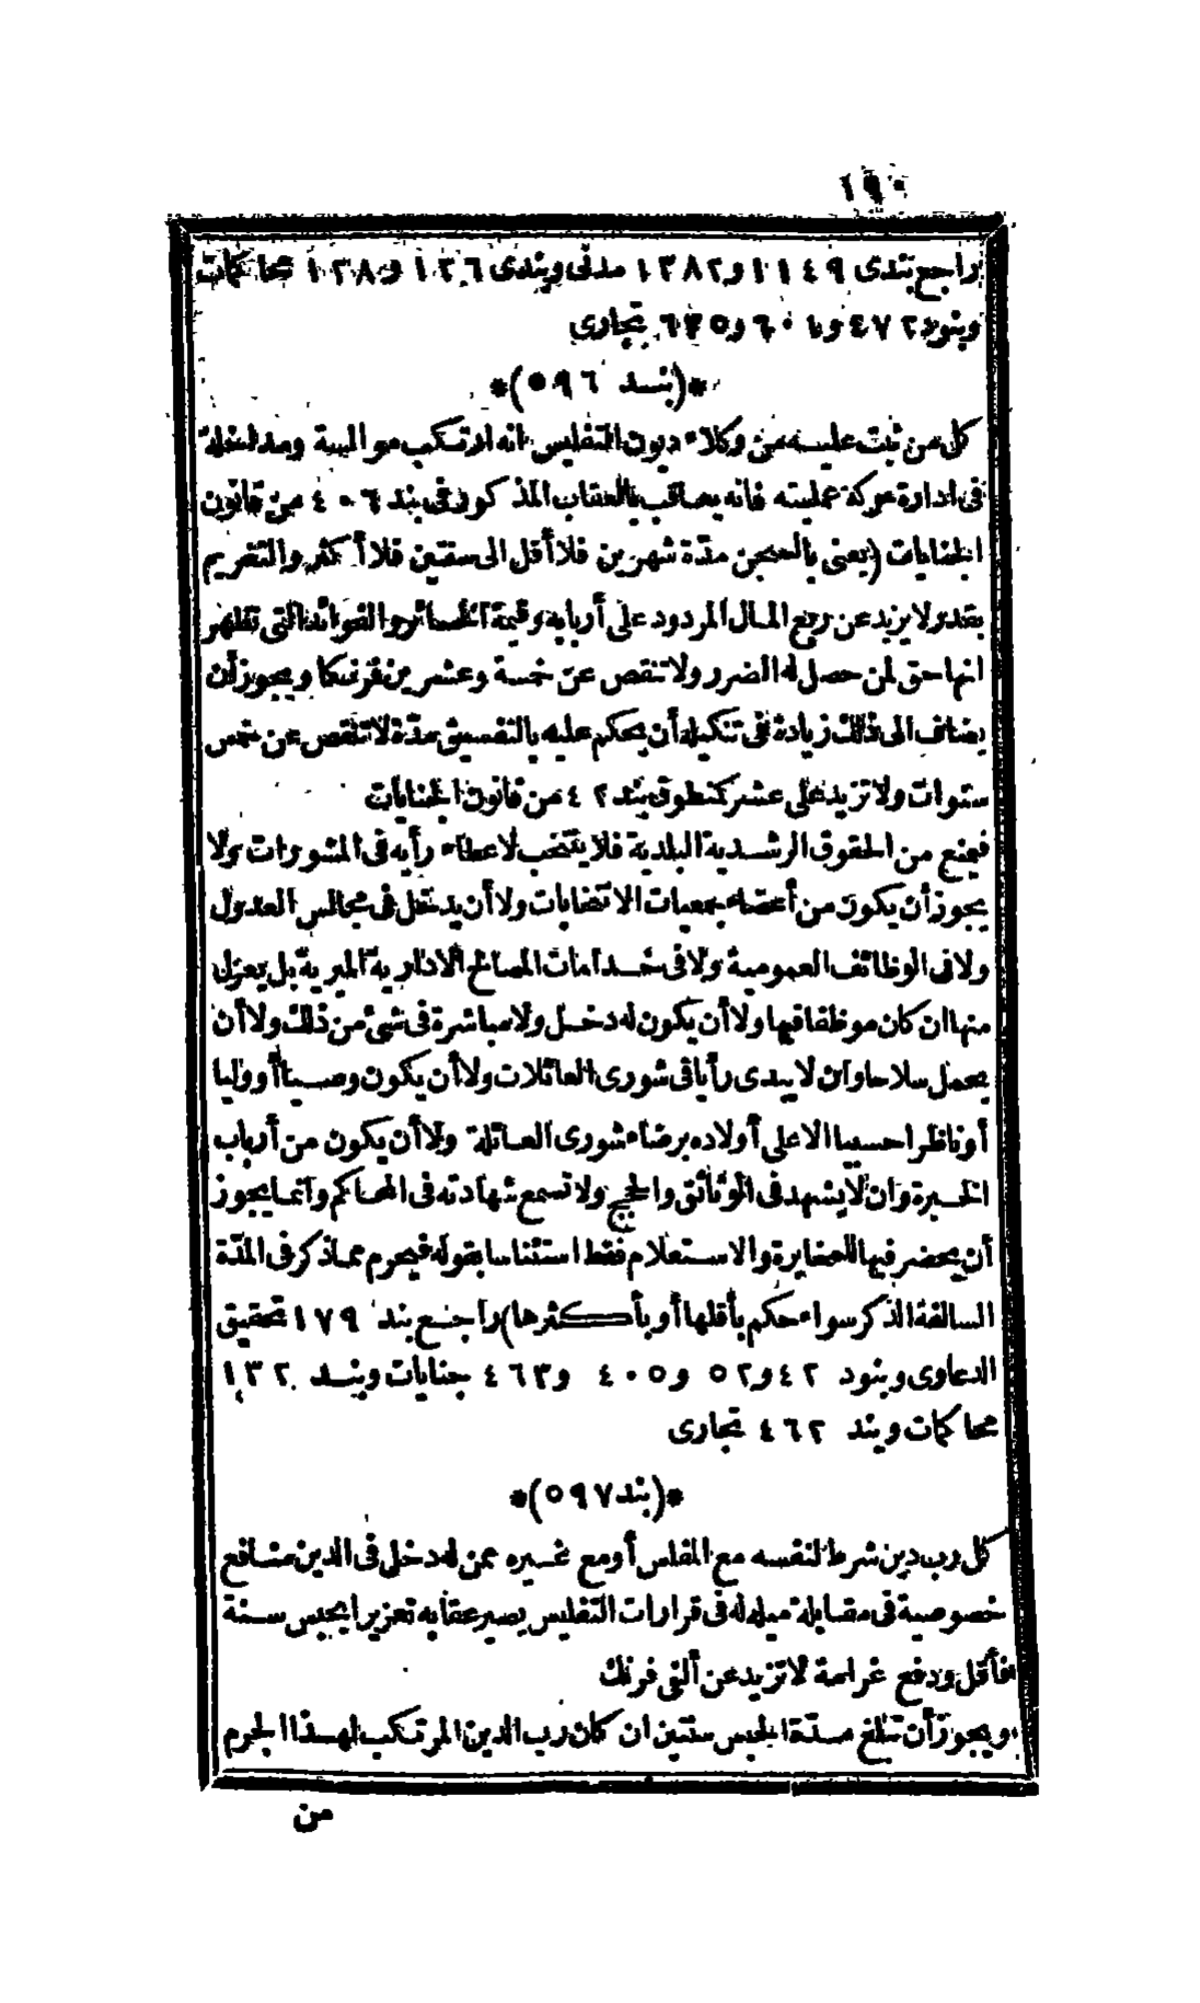 ١٩٠
راجع بندى ١١٤٩ و١٣٨٢ مدنى وبندى ١٢٦ و١٣٨ محاكمات
وبنود ٤٧٢ و٦٠١ و٦٣٥ تجارى
*(بند ٥٩٦)*
كل من ثبت عليه من وكلاء ديون التفليس انه ارتكب موالية ومداخلة
فى ادارة حركة عمليته فانه يعاقب بالعقاب المذكور فى بند ٤٠٦ من قانون
الجنايات (يعنى بالسجن مدّة شهرين فلا أقل الى سنتين فلا أكثر والتغريم
بقدر لا يزيد عن ربع المال المردود على أربابه وقيمة الخسائر والفوائد التى تظهر
انها حق لمن حصل له الضرر ولا تنقص عن خمسة وعشرين فرنكا ويجوز أن
يضاف الى ذلك زيادة فى تنكيله أن يحكم عليه بالتفسيق مدّة لا تنقص عن خمس
سنوات ولا تزيد على عشر كمنطوق بند ٤٢ من قانون الجنايات
فيمنع من الحقوق الرشدية البلدية فلا ينتخب لاعطاء رأيه فى المشورات ولا
يجوز أن يكون من أعضاء جمعيات الانتخابات ولا أن يدخل فى مجالس العدول
ولا فى الوظائف العمومية ولا فى خدامات المصالح الادارية الميرية بل يعزل
منها ان كان موظفا فيها ولا أن يكون له دخل ولا مباشرة فى شئ من ذلك ولا أن
يحمل سلاحا وان لا يبدى رأيا فى شورى العائلات ولا أن يكون وصيا أو وليا
أو ناظرا حسبيا الا على أولاده برضاء شورى العائلة ولا أن يكون من أرباب
الخبرة وان لا يشهد فى الوثائق والحجج ولا تسمع شهادته فى المحاكم وانما يجوز
أن يحضر فيها للمخابرة والاستعلام فقط استئناسا بقوله فيحرم مما ذكر فى المدّة
السالفة الذكر سواء حكم بأقلها أو بأكثرها) راجع بند ١٧٩ تحقيق
الدعاوى وبنود ٤٢ و٥٢ و٤٠٥ و٤٦٣ جنايات وبند ١٣٢
محاكمات وبند ٤٦٢ تجارى
*(بند ٥٩٧)*
كل رب دين شرط لنفسه مع المفلس أو مع غيره ممن له دخل فى الدين منافع
خصوصية فى مقابلة ميله له فى قرارات التفليس يصير عقابه تعزيرا بحبس سنة
فأقل ودفع غرامة لا تزيد عن ألفى فرنك
ويجوز أن تبلغ مدّة الحبس سنتين ان كان رب الدين المرتكب لهذا الجرم
من